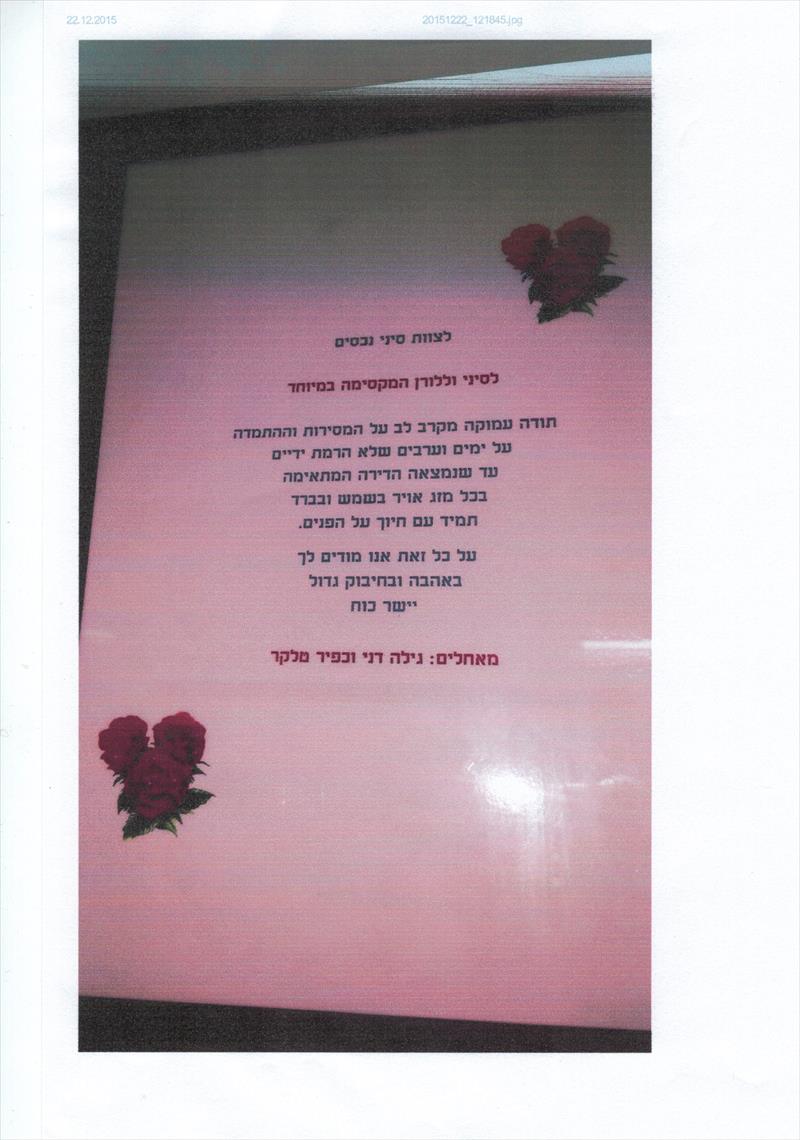 22.12.2015
20151222_121845.jpg
לצוות סיני נכסים
לסיני וללורן המקסימה במיוחד
תודה עמוקה מקרב לב על המסירות וההתמדה
על ימים וערבים שלא הרמת ידיים
עד שנמצאה הדירה המתאימה
בכל מזג אויר בשמש ובברד
תמיד עם חיוך על הפנים.
על כל זאת אנו מודים לך
באהבה ובחיבוק גדול
יישר כוח
מאחלים: גילה דני וכפיר טלקר